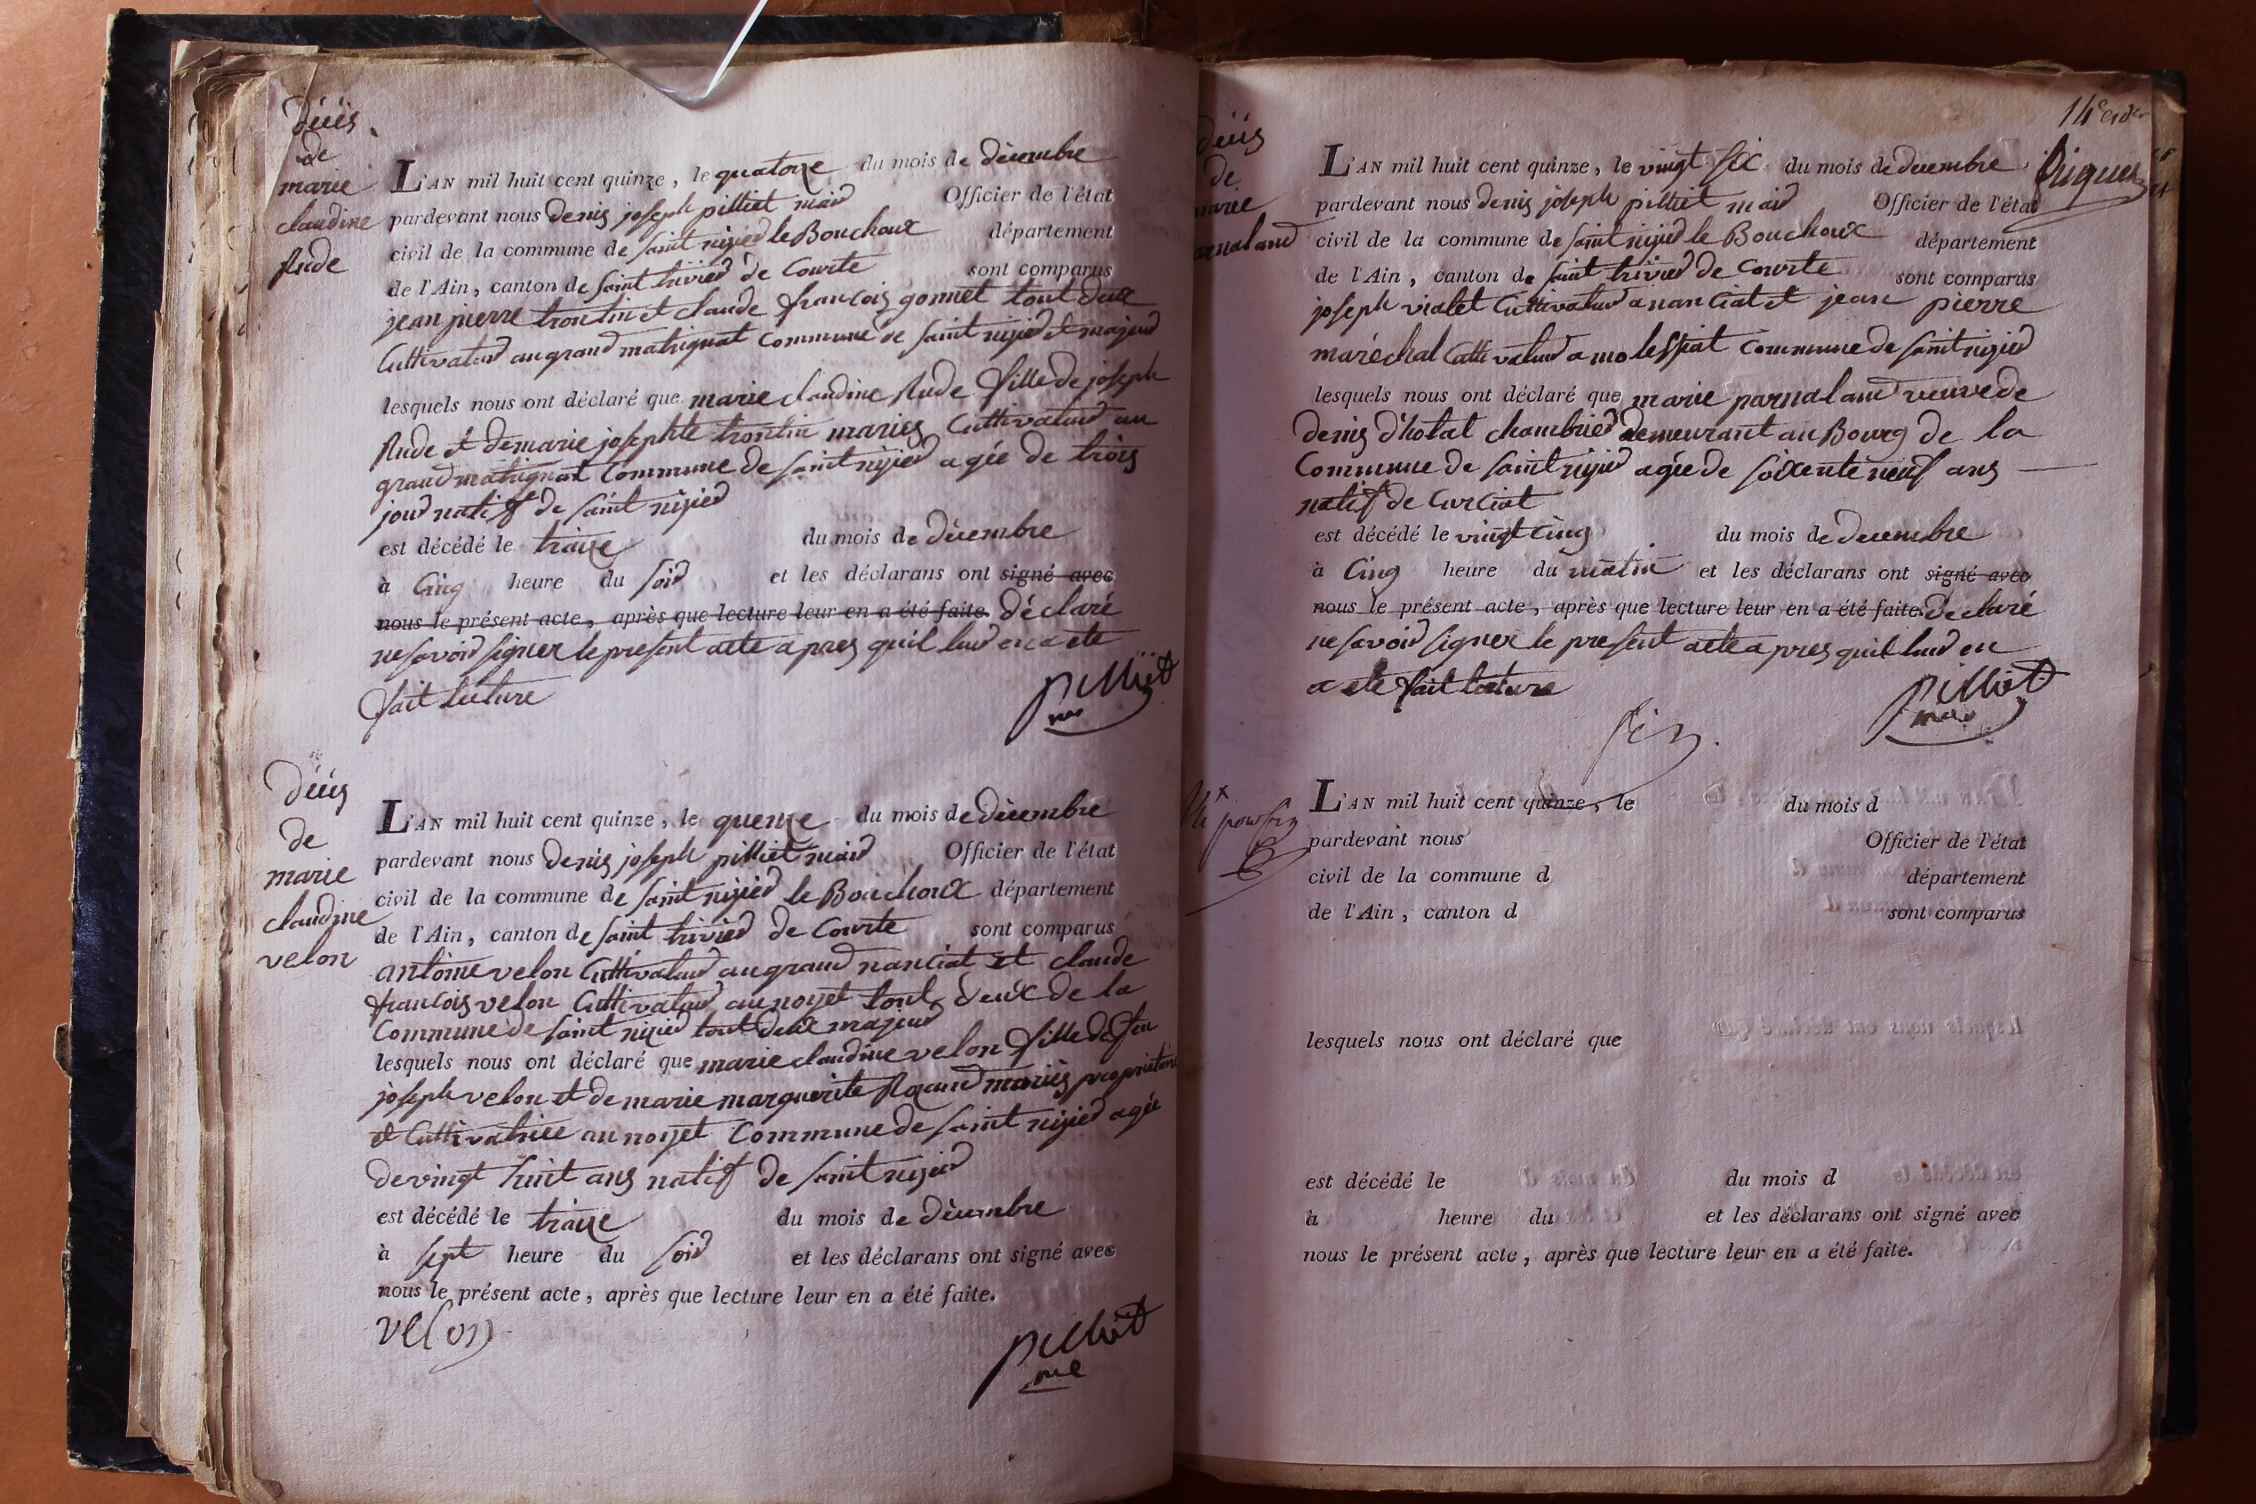 décés
de
marie
claudine
Rude
L'AN mil huit cent quinze, le quatorze du mois de décembre
pardevant nous denis joseph pilliet maid Officier de l'état
civil de la commune de saint nizied le Bouchoux département
de l'Ain, canton de saint trivied de Courte sont comparus
jean pierre trontin et claude françois gonnet tout deux
Cultivatud au grand matrignat commune de saint nizied et majeud
lesquels nous ont déclaré que marie claudine Rude fille de joseph
Rude et de marie josephte trontin mariés Cultivatud au
grand matrignat Commune de saint nizied agée de trois
joud natif de saint nizied
est décédé le traize du mois de décembre
à Cinq heure du soid et les déclarans ont signé avec
nous le présent acte, après que lecture leur en a été faite. déclaré
ne savoid signer le present acte apres quil lud en a ete
fait lecture
pilliet
décés
de
marie
claudine
velon
L'AN mil huit cent quinze, le quenze du mois de décembre
pardevant nous denis joseph pilliet maid Officier de l'état
civil de la commune de saint nizied le Bouchoux département
de l'Ain, canton de saint trivied de Courte sont comparus
antoine velon Cultivatud au grand nanciat et claude
françois velon Cultivatud au noyet tout deux de la
Commune de saint nizied tout deux majeud
lesquels nous ont déclaré que marie claudine velon fille de feu
joseph velon et de marie marguerite mariés
et Cultivatrice au noyet Commune de saint nizied agée
de vingt huit ans natif de saint nizied
est décédé le traize du mois de décembre
à sept heure du soid et les déclarans ont signé avec
nous le présent acte, après que lecture leur en a été faite.
velon
pilliet
14e et der
décés
de
marie
parnaland
L'AN mil huit cent quinze, le vingt six du mois de decembre
pardevant nous denis joseph pilliet maid Officier de l'état
civil de la commune de saint nizied le Bouchoux département
de l'Ain, canton de saint trivied de Courte sont comparus
joseph vialet Cultivatud a nanciat et jean pierre
maréchal Cultivatud a molessiat Commune de saint nizied
lesquels nous ont déclaré que marie parnaland veuve de
denis d'hotal chambried demeurant au Bourg de la
Commune de saint nizied agée de soixente neuf ans
natif de Curciat
est décédé le vingt cinq du mois de decembre
à Cinq heure du matin et les déclarans ont signé avec
nous le présent acte, après que lecture leur en a été faite. declaré
ne savoid signer le present acte apres quil lud en
a ete fait lecture
pilliet
fin.
L'AN mil huit cent quinze, le du mois d
pardevant nous Officier de l'état
civil de la commune d département
de l'Ain, canton d sont comparus
lesquels nous ont déclaré que
est décédé le du mois d
à heure du et les déclarans ont signé avec
nous le présent acte, après que lecture leur en a été faite.